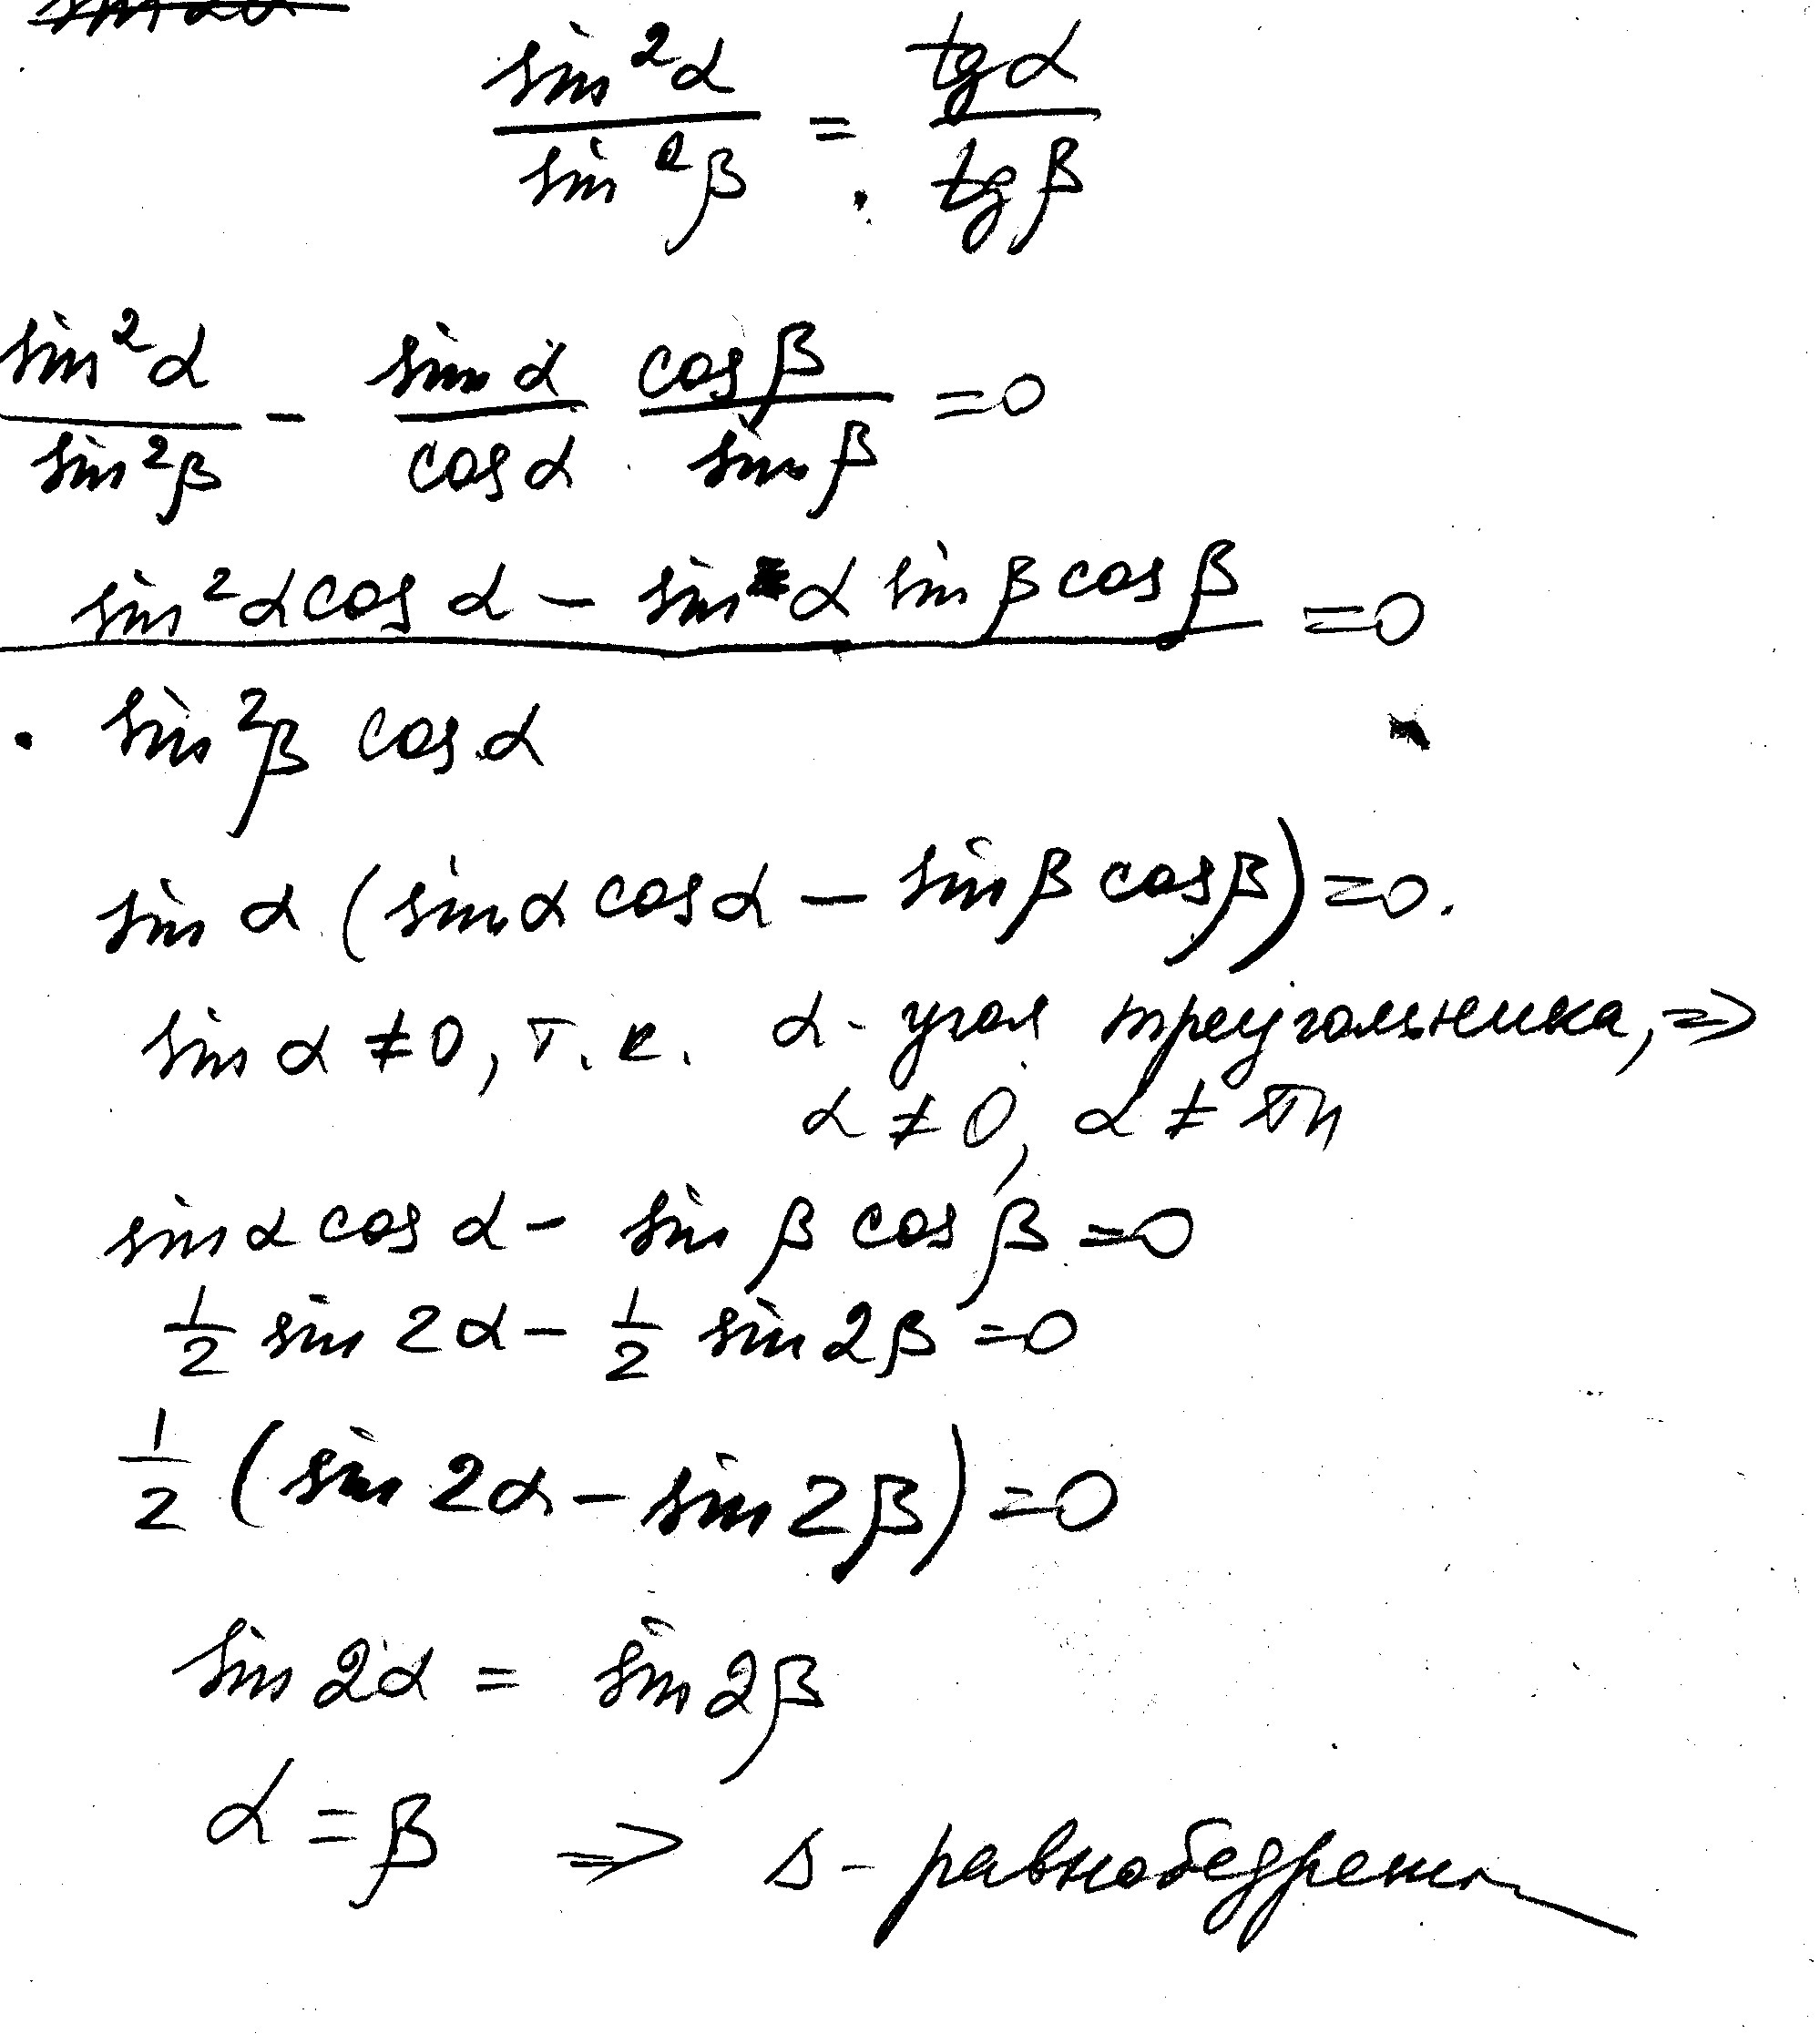 sin²α / sin²β = tg α / tg β
sin²α / sin²β - sin α / cos α · cos β / sin β = 0
(sin²α cos α - sin α sin β cos β) / (sin²β cos α) = 0
sin α (sin α cos α - sin β cos β) = 0.
sin α ≠ 0, т.к. α - угол треугольника, ⇒
α ≠ 0, α ≠ πn
sin α cos α - sin β cos β = 0
1/2 sin 2α - 1/2 sin 2β = 0
1/2 (sin 2α - sin 2β) = 0
sin 2α = sin 2β
α = β ⇒ Δ - равнобедрен